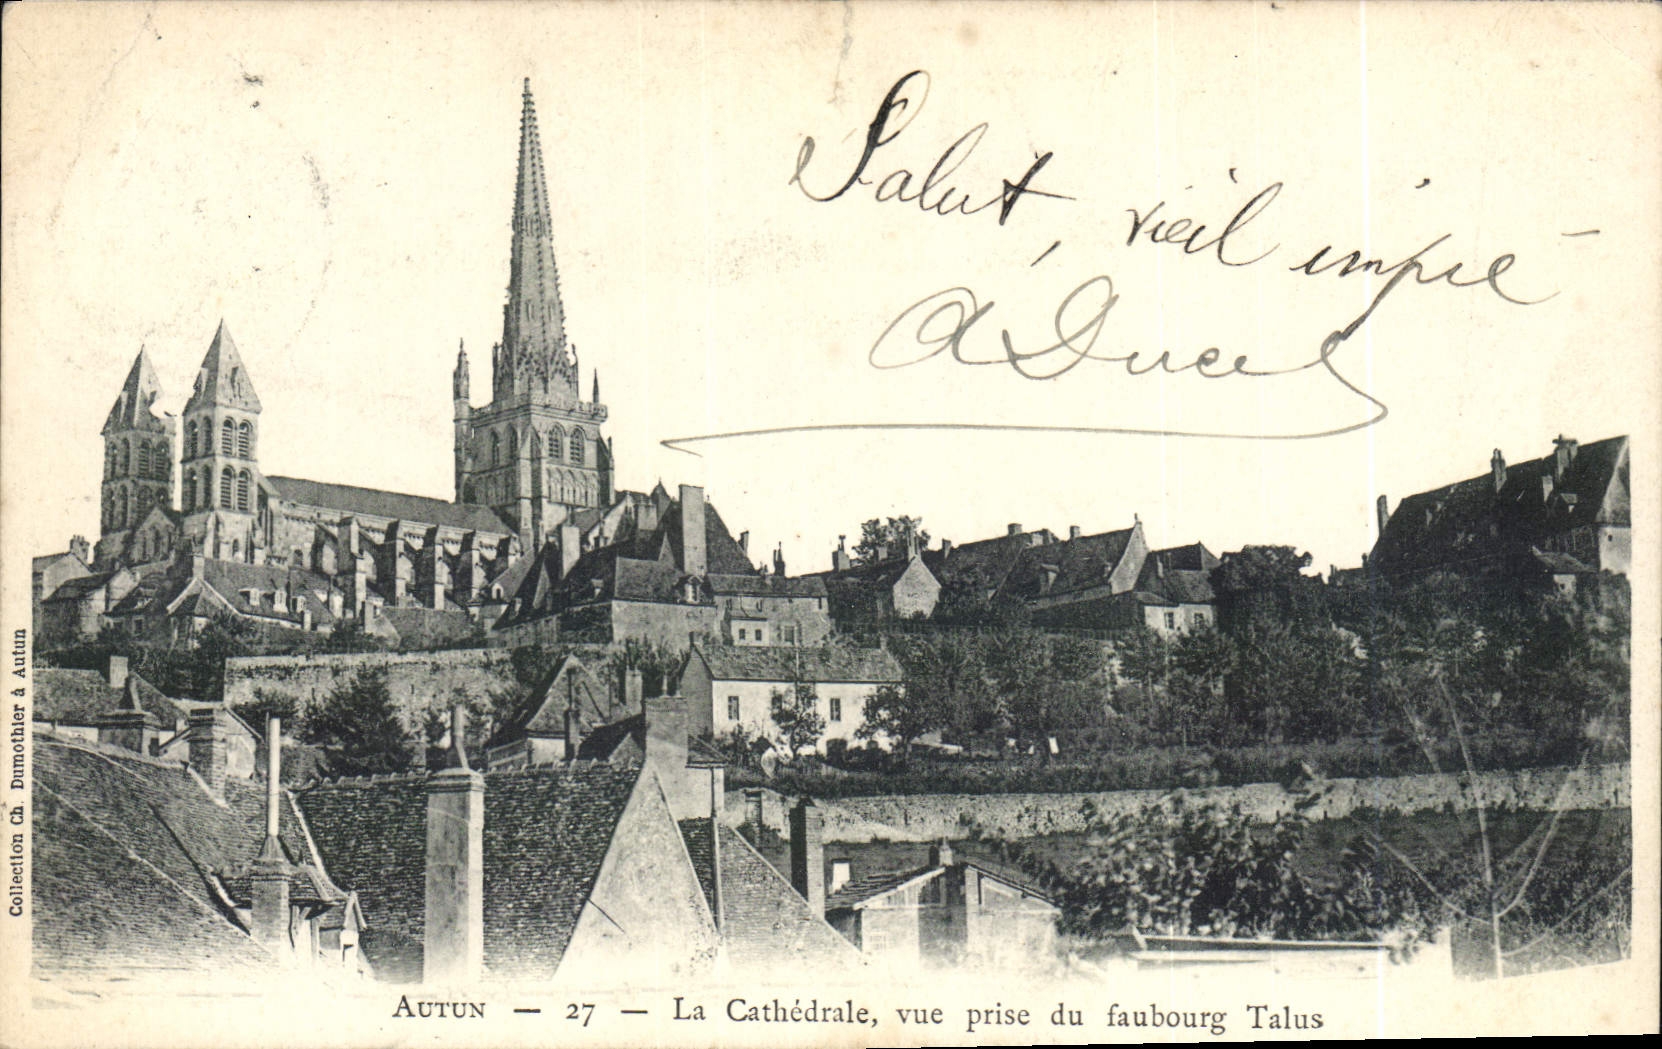 Salut, vieil impie -
Collection Ch. Dumothier à Autun
AUTUN — 27 — La Cathédrale, vue prise du faubourg Talus